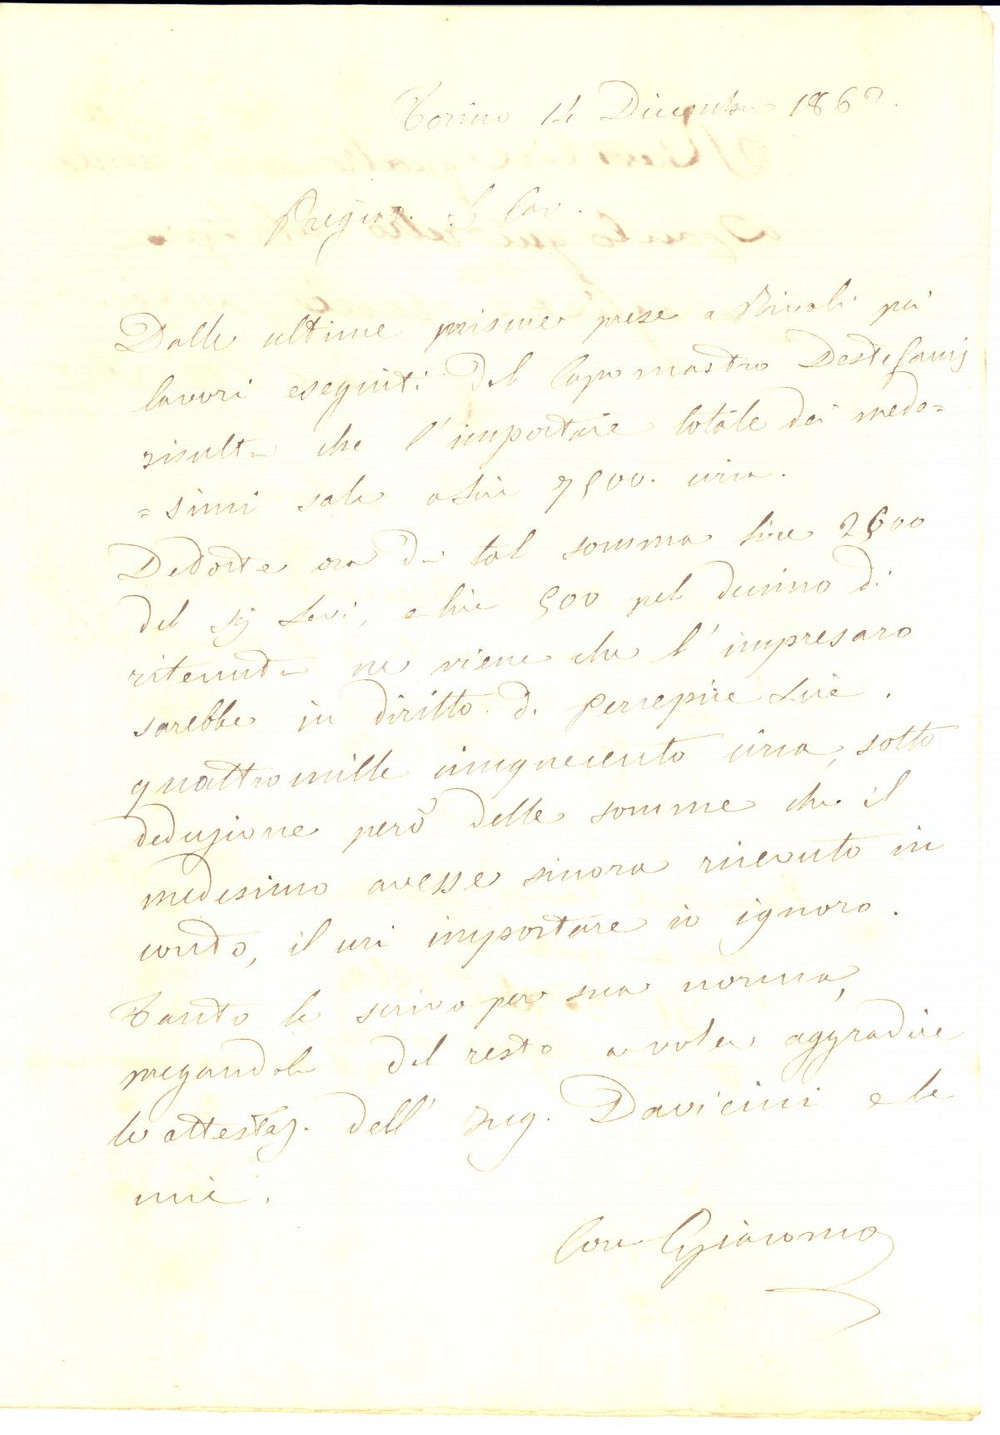 Torino 14 Dicembre 186
Pregmo. S. Cav.
Dalle ultime misure prese a Rivoli pei
lavori eseguiti del Capo mastro Destefanis
risulta che l'importare totale dei mede=
=simi sale a Lire 7500. circa.
Dedotte ora da tal somma lire 2500
del Sig Levi, e lire 500 pel decimo di
ritenuta ne viene che l'impresaro
sarebbe in diritto di percepire Lire.
quattromille cinquecento circa, sotto
deduzione però delle somme che il
medesimo avesse sinora ricevuto in
conto, il cui importare io ignoro.
Tanto le scrivo per sua norma,
pregandola del resto a voler aggradire
le attestaz. dell' Ing. Davicini e le
mie.
Giacomo